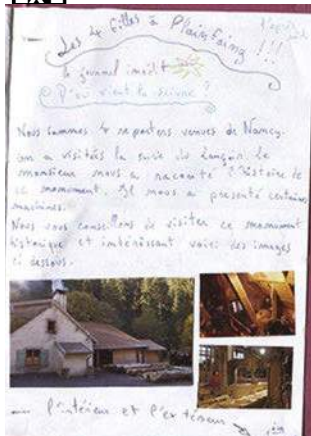 Les 4 filles à Plainfaing !!!
le journal inédit
D'où vient la scierie ?
Nous sommes 4 reporters venues de Nancy.
on a visitées la scierie du Lançoir. le
monsieur nous a raconté l'histoire de
ce monument. Il nous a présenté certaines
machines.
Nous vous conseillons de visiter ce monument
historique et intéressant voici des images
ci dessous.
l'intérieur et l'extérieur